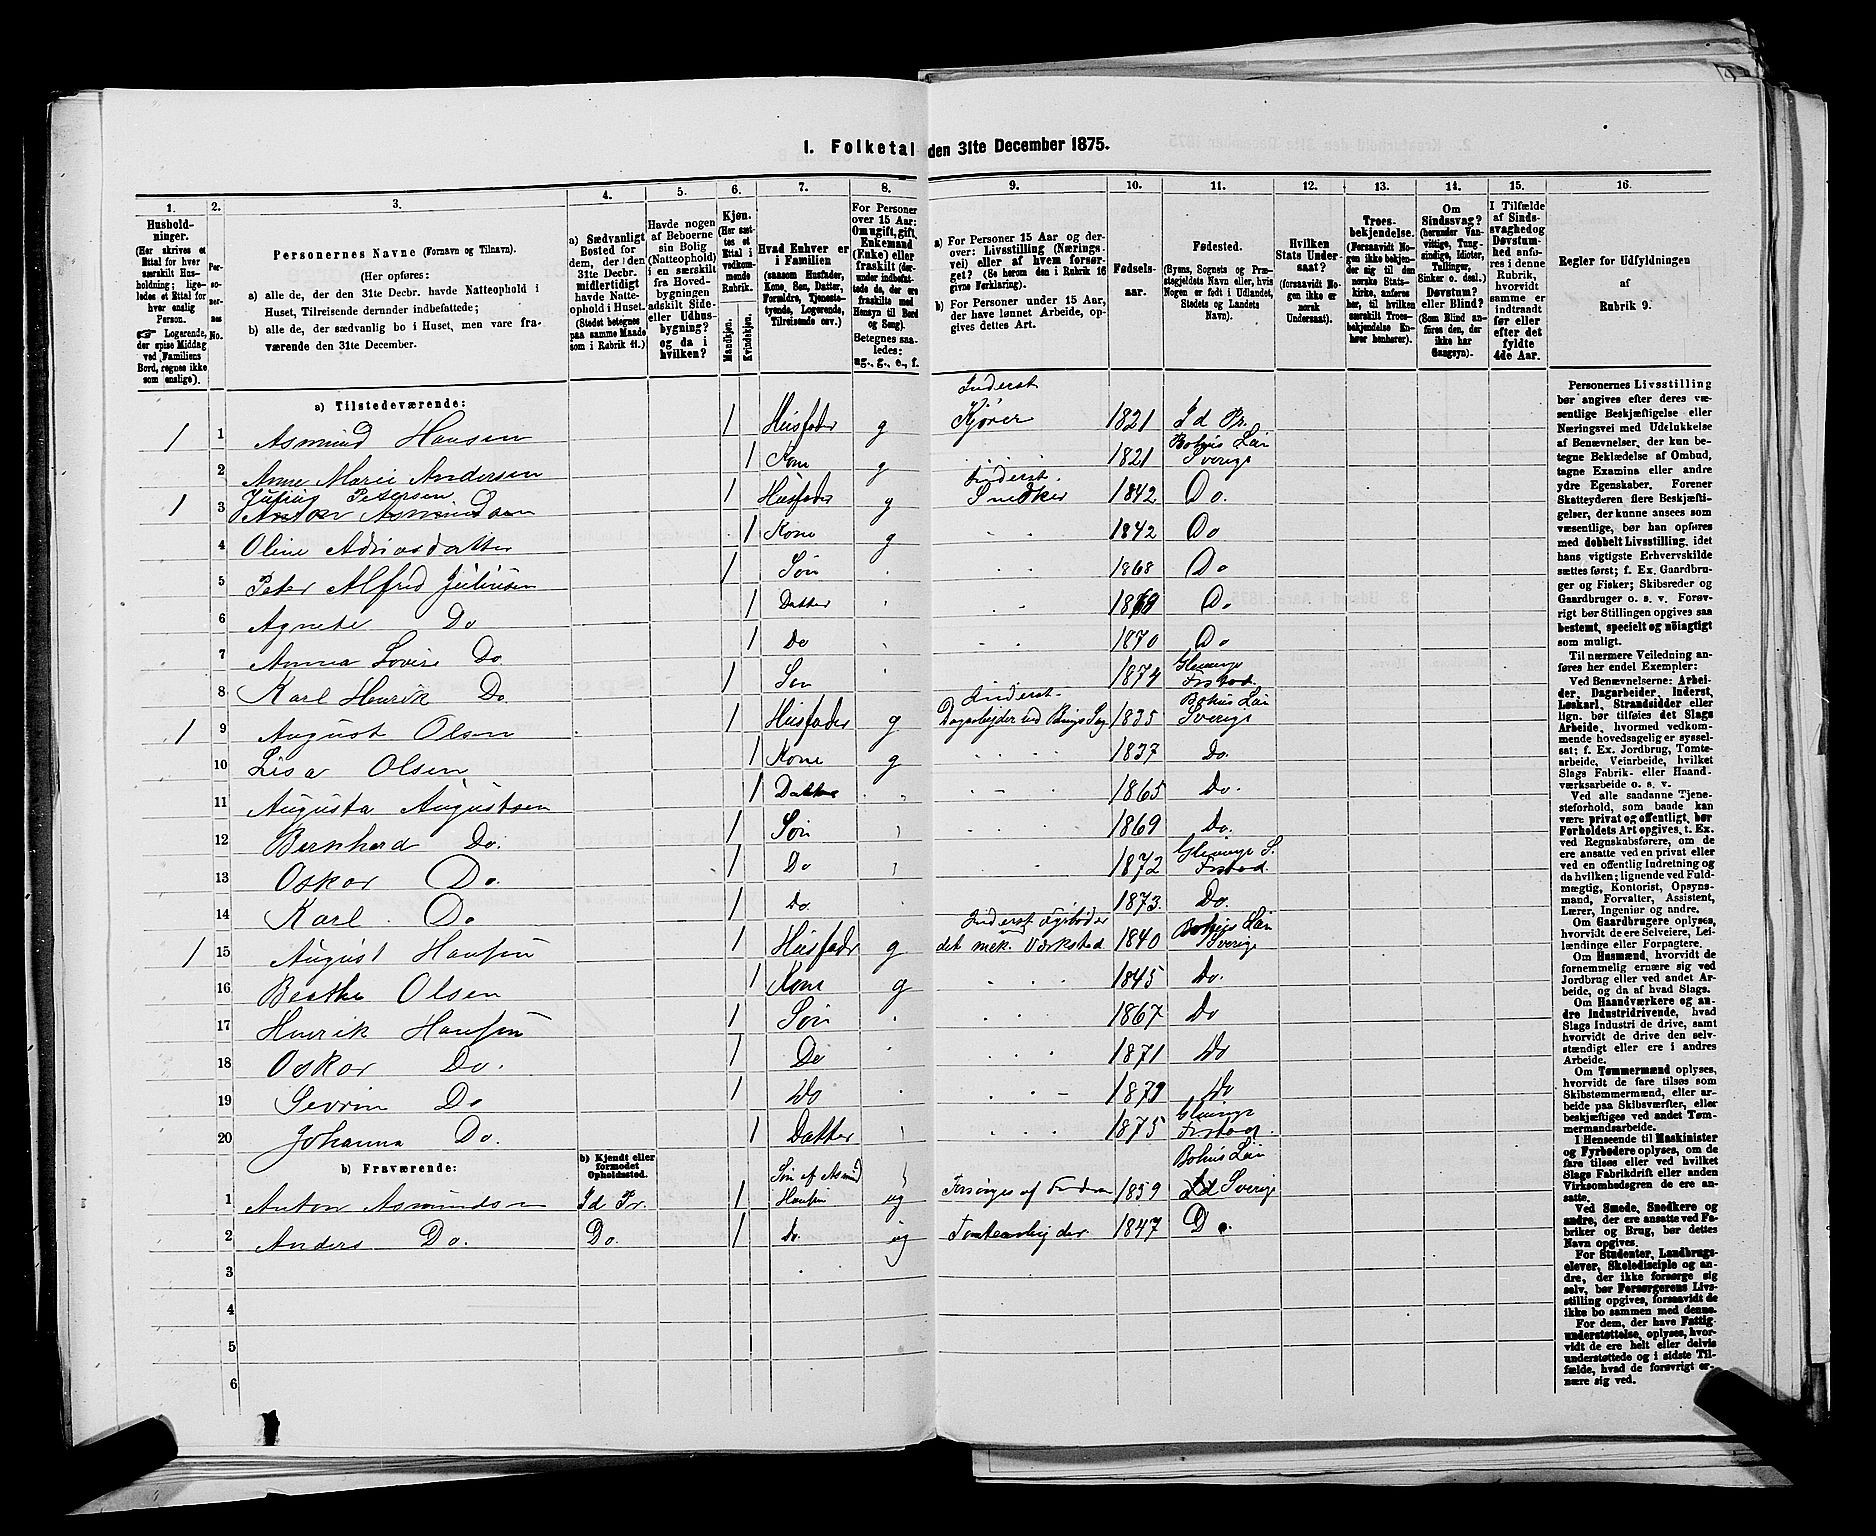 I. Folketal den 31te December 1875.
1. 2. 3. 4. 5. 6. 7. 8. 9. 10. 11. 12. 13. 14. 15. 16.
Hushold-
ninger.
(Her skrives et
Ettal for hver
særskilt Hus-
holdning; lige-
ledes et Ettal for
hver enslig
Person.
☞ Logerende,
der spise Middag
ved Familiens
Bord, regnes ikke
som enslige).
Per-
so-
ner-
nes
No.
Personernes Navne (Fornavn og Tilnavn).
(Her opføres:
a) alle de, der den 31te Decbr. havde Natteophold i
Huset, Tilreisende derunder indbefattede;
b) alle de, der sædvanlig bo i Huset, men vare fra-
værende den 31te December.
a) Sædvanligt
Bosted for
dem, der den
31te Decbr.
midlertidigt
havde Natte-
ophold i Huset.
(Stedet betegnes
paa samme Maade
som i Rubrik 11.)
Havde nogen
af Beboerne
sin Bolig
(Natteophold)
i en særskilt
fra Hoved-
bygningen
adskilt Side-
eller Udhus-
bygning?
og da i
hvilken?
Kjøn.
(Her sæt-
tes et
Ettal i
vedkom-
mende
Rubrik.
Mandkjøn.
Kvindekjøn.
Hvad Enhver er
i Familien
(saasom Husfader,
Kone, Søn, Datter,
Forældre, Tjeneste-
tyende, Logerende,
Tilreisende osv.)
For Personer
over 15 Aar:
Om ugift, gift,
Enkemand
(Enke) eller
fraskilt (der-
under indbefat-
tede de, der ere
fraskilte med
Hensyn til Bord
og Seng).
Betegnes saa-
ledes:
ug., g., e., f.
a) For Personer 15 Aar og der-
over: Livsstilling (Nærings-
vei) eller af hvem forsør-
get? (Se herom den i Rubrik 16
givne Forklaring).
b) For Personer under 15 Aar,
der have lønnet Arbeide, op-
gives dettes Art.
Fødsels-
aar.
Fødested.
(Byens, Sognets og Præ-
stegjeldets Navn eller, hvis
Nogen er født i Udlandet,
Stedets og Landets
Navn).
Hvilken
Stats Under-
saat?
(forsaavidt No-
gen ikke er
norsk
Undersaat).
Troes-
bekjendelse.
(Forsaavidt No-
gen ikke bekjen-
der sig til den
norske Stats-
kirke, anføres
her, til hvilken
særskilt Troes-
bekjendelse En-
hver henhører).
Om
Sindssvag?
(herunder Van-
vittige, Tung-
sindige, Idioter,
Tullinger,
Sinker o. desl.)
Døvstum?
eller Blind?
(Som Blind an-
føres den, der
ikke har
Gangsyn).
I Tilfælde
af Sinds-
svaghed og
Døvstum-
hed anfø-
res i denne
Rubrik,
hvorvidt
samme er
indtraadt
før eller
efter det
fyldte
4de Aar.
Regler for Udfyldningen
af
Rubrik 9.
a) Tilstedeværende:
1 1 Asmund Hansen 1 Husfader g Inderst Kjører 1821 Id Pr.
2 Anne Marie Andersen 1 Kone g 1821 Bohus Län Sverige
1 3 Julius Petersen Anton Asmundsen 1 Husfader g Inderst. Snedker 1842 Do.
4 Oline 1 Kone g 1842 Do
5 Peter Alfred Juliusen 1 Søn 1868 Do
6 Agnete Do 1 Datter 1869 Do
7 Anna Lovise Do 1 Do 1870 Do
8 Karl Henrik Do. 1 Søn 1874 Glemminge Frstad.
1 9 August Olsen 1 Husfader g Inderst. Dagarbejder ved Brugs Sag 1835 Bohus Län Sverige
10 Lisa Olsen 1 Kone g 1837 Do.
11 Augusta Augustsen 1 Datter 1865 Do.
12 Bernhard Do. 1 Søn 1869 Do.
13 Oskar Do. 1 Do 1872 Glemminge S. Frstad.
14 Karl Do 1 Do. 1873. Do.
1 15 August Hansen 1 Husfader g Inderst Fyrbøder det mek. Værksted 1840 Bohus Län Sverige
16 Beathe Olsen 1 Kone g 1845 Do.
17 Henrik Hansen 1 Søn 1867 Do
18 Oskar Do. 1 Do 1871 Do
19 Sevrin Do 1 Do Do
20 Johanna Do. 1 Datter 1875 Glemminge Frstad.
b) Fraværende: b) Kjendt eller
formodet
Opholdssted.
1 Anton Asmundsen Id Pr. 1 Søn af Asmund Hansen ug Forsørges af Fadren 1859 Bohus Län Sverige
2 Anders Do. Do. 1 Do. ug Tomtearbejder 1847 Do.
3
4
5
6
Personernes Livsstilling
bør angives efter deres væ-
sentlige Beskjæftigelse eller
Næringsvei med Udelukkelse
af Benævnelser, der kun be-
tegne Beklædelse af Ombud,
tagne Examina eller andre
ydre Egenskaber. Forener
Skatteyderen flere Beskjæfti-
gelser, der kunne ansees som
væsentlige, bør han opføres
med dobbelt Livsstilling, idet
hans vigtigste Erhvervskilde
sættes først; f. Ex. Gaardbru-
ger og Fisker; Skibsreder og
Gaardbruger o. s. v. Forøv-
rigt bør Stillingen opgives saa
bestemt, specielt og nöiagtigt
som muligt.
Til nærmere Veiledning an-
føres her endel Exempler:
Ved Benævnelserne: Arbei-
der, Dagarbeider, Inderst,
Løskarl, Strandsidder eller
lign. bør tilføies det Slags
Arbeide, hvormed vedkom-
mende hovedsagelig er syssel-
sat; f. Ex. Jordbrug, Tomte-
arbeide, Veiarbeide, hvilket
Slags Fabrik- eller Haand-
værksarbeide o. s. v.
Ved alle saadanne Tjene-
steforhold, som baade kan
være privat og offentligt, bør
Forholdets Art opgives, t. Ex.
ved Regnskabsførere, om de
ere ansatte ved en privat eller
ved en offentlig Indretning og
da hvilken; lignende ved Fuld-
mægtig, Kontorist, Opsyns-
mand, Forvalter, Assistent,
Lærer, Ingeniør og andre.
Om Gaardbrugere oplyses,
hvorvidt de ere Selveiere, Lei-
lændinge eller Forpagtere.
Om Husmænd, hvorvidt de
fornemmelig ernære sig ved
Jordbrug eller ved andet Ar-
beide, og da af hvad Slags.
Om Haandværkere og an-
dre Industridrivende, hvad
Slags Industri de drive, samt
hvorvidt de drive den selv-
stændigt eller ere i andres
Arbeide.
Om Tømmermænd oplyses,
hvorvidt de fare tilsøs som
Skibstømmermænd, eller ar-
beide paa Skibsværfter, eller
beskjæftiges ved andet Tøm-
mermandsarbeide.
I Henseende til Maskinister
og Fyrbødere oplyses, om de
fare tilsøs eller ved hvilket
Slags Fabrikdrift eller anden
Virksomhedsgren de ere an-
satte.
Ved Smede, Snedkere og
andre, der ere ansatte ved Fa-
briker og Brug, bør dettes
Navn opgives.
For Studenter, Landbrugs-
elever, Skoledisciple og an-
dre, der ikke forsørge sig
selv, bør Forsørgerens Livs-
stilling opgives, forsaavidt de
ikke bo sammen med denne.
For dem, der have Fattig-
understøttelse, oplyses, hvor-
vidt de ere helt eller delvis
understøttede og i sidste Til-
fælde, hvad de forøvrigt er-
nære sig ved.